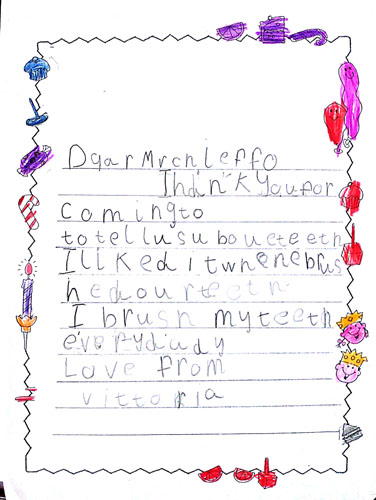 Dqar Mrcnleffo
Ihank youfor
comingto
totellusuboueteeth
Illked itwnenebrus
hedourteeth
I brush myteeth
everydudy
Love from
vittoria